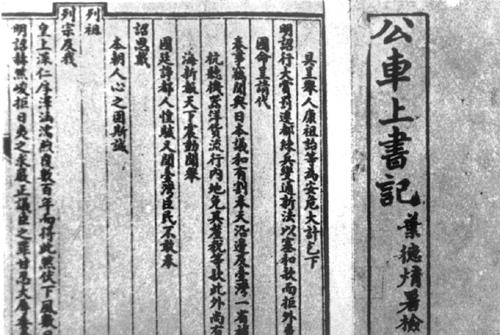 公車上書記
葉德 署檢
具呈舉人康祖詒等為安危大計乞下
明詔行大賞罰遷都練兵變通新法以塞和款而拒外
國命呈請代
奏事竊聞與日本議和有割奉天沿邊及臺灣一省
杭聽機器洋貨流行內地免其釐稅等款此外尚有
海新報天下震動聞舉
國廷諍都人惶駭又聞臺灣臣民不敢奉
詔思戴
本朝人心之固斯誠
列祖
列宗及我
皇上深仁厚澤涵濡煦覆數百年而得此然伏下風數日
明詔赫然峻拒日夷之求嚴正議臣之罪甘忍大辱委